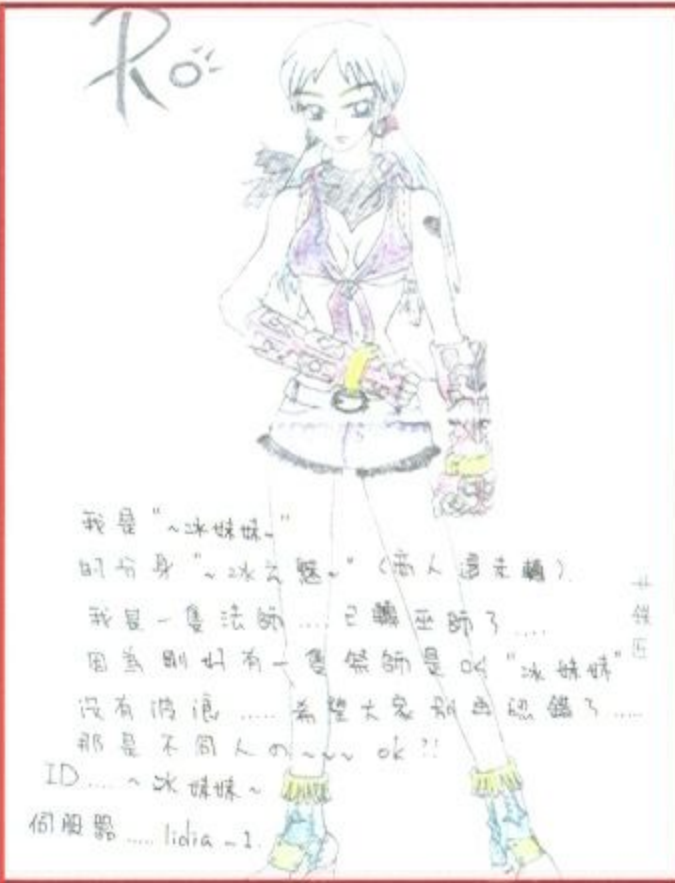 RO
我是"~冰妹妹~"
的分身"~冰之魅~"(商人還未轉)
我是一隻法師....已轉巫師了....
因為剛好有一隻祭師是OK"冰妹妹"
沒有波浪.....希望大家別再認錯了.....
那是不同人の~~~ ok?!
ID....~冰妹妹~
伺服器.....lidia~1.
女鐵匠